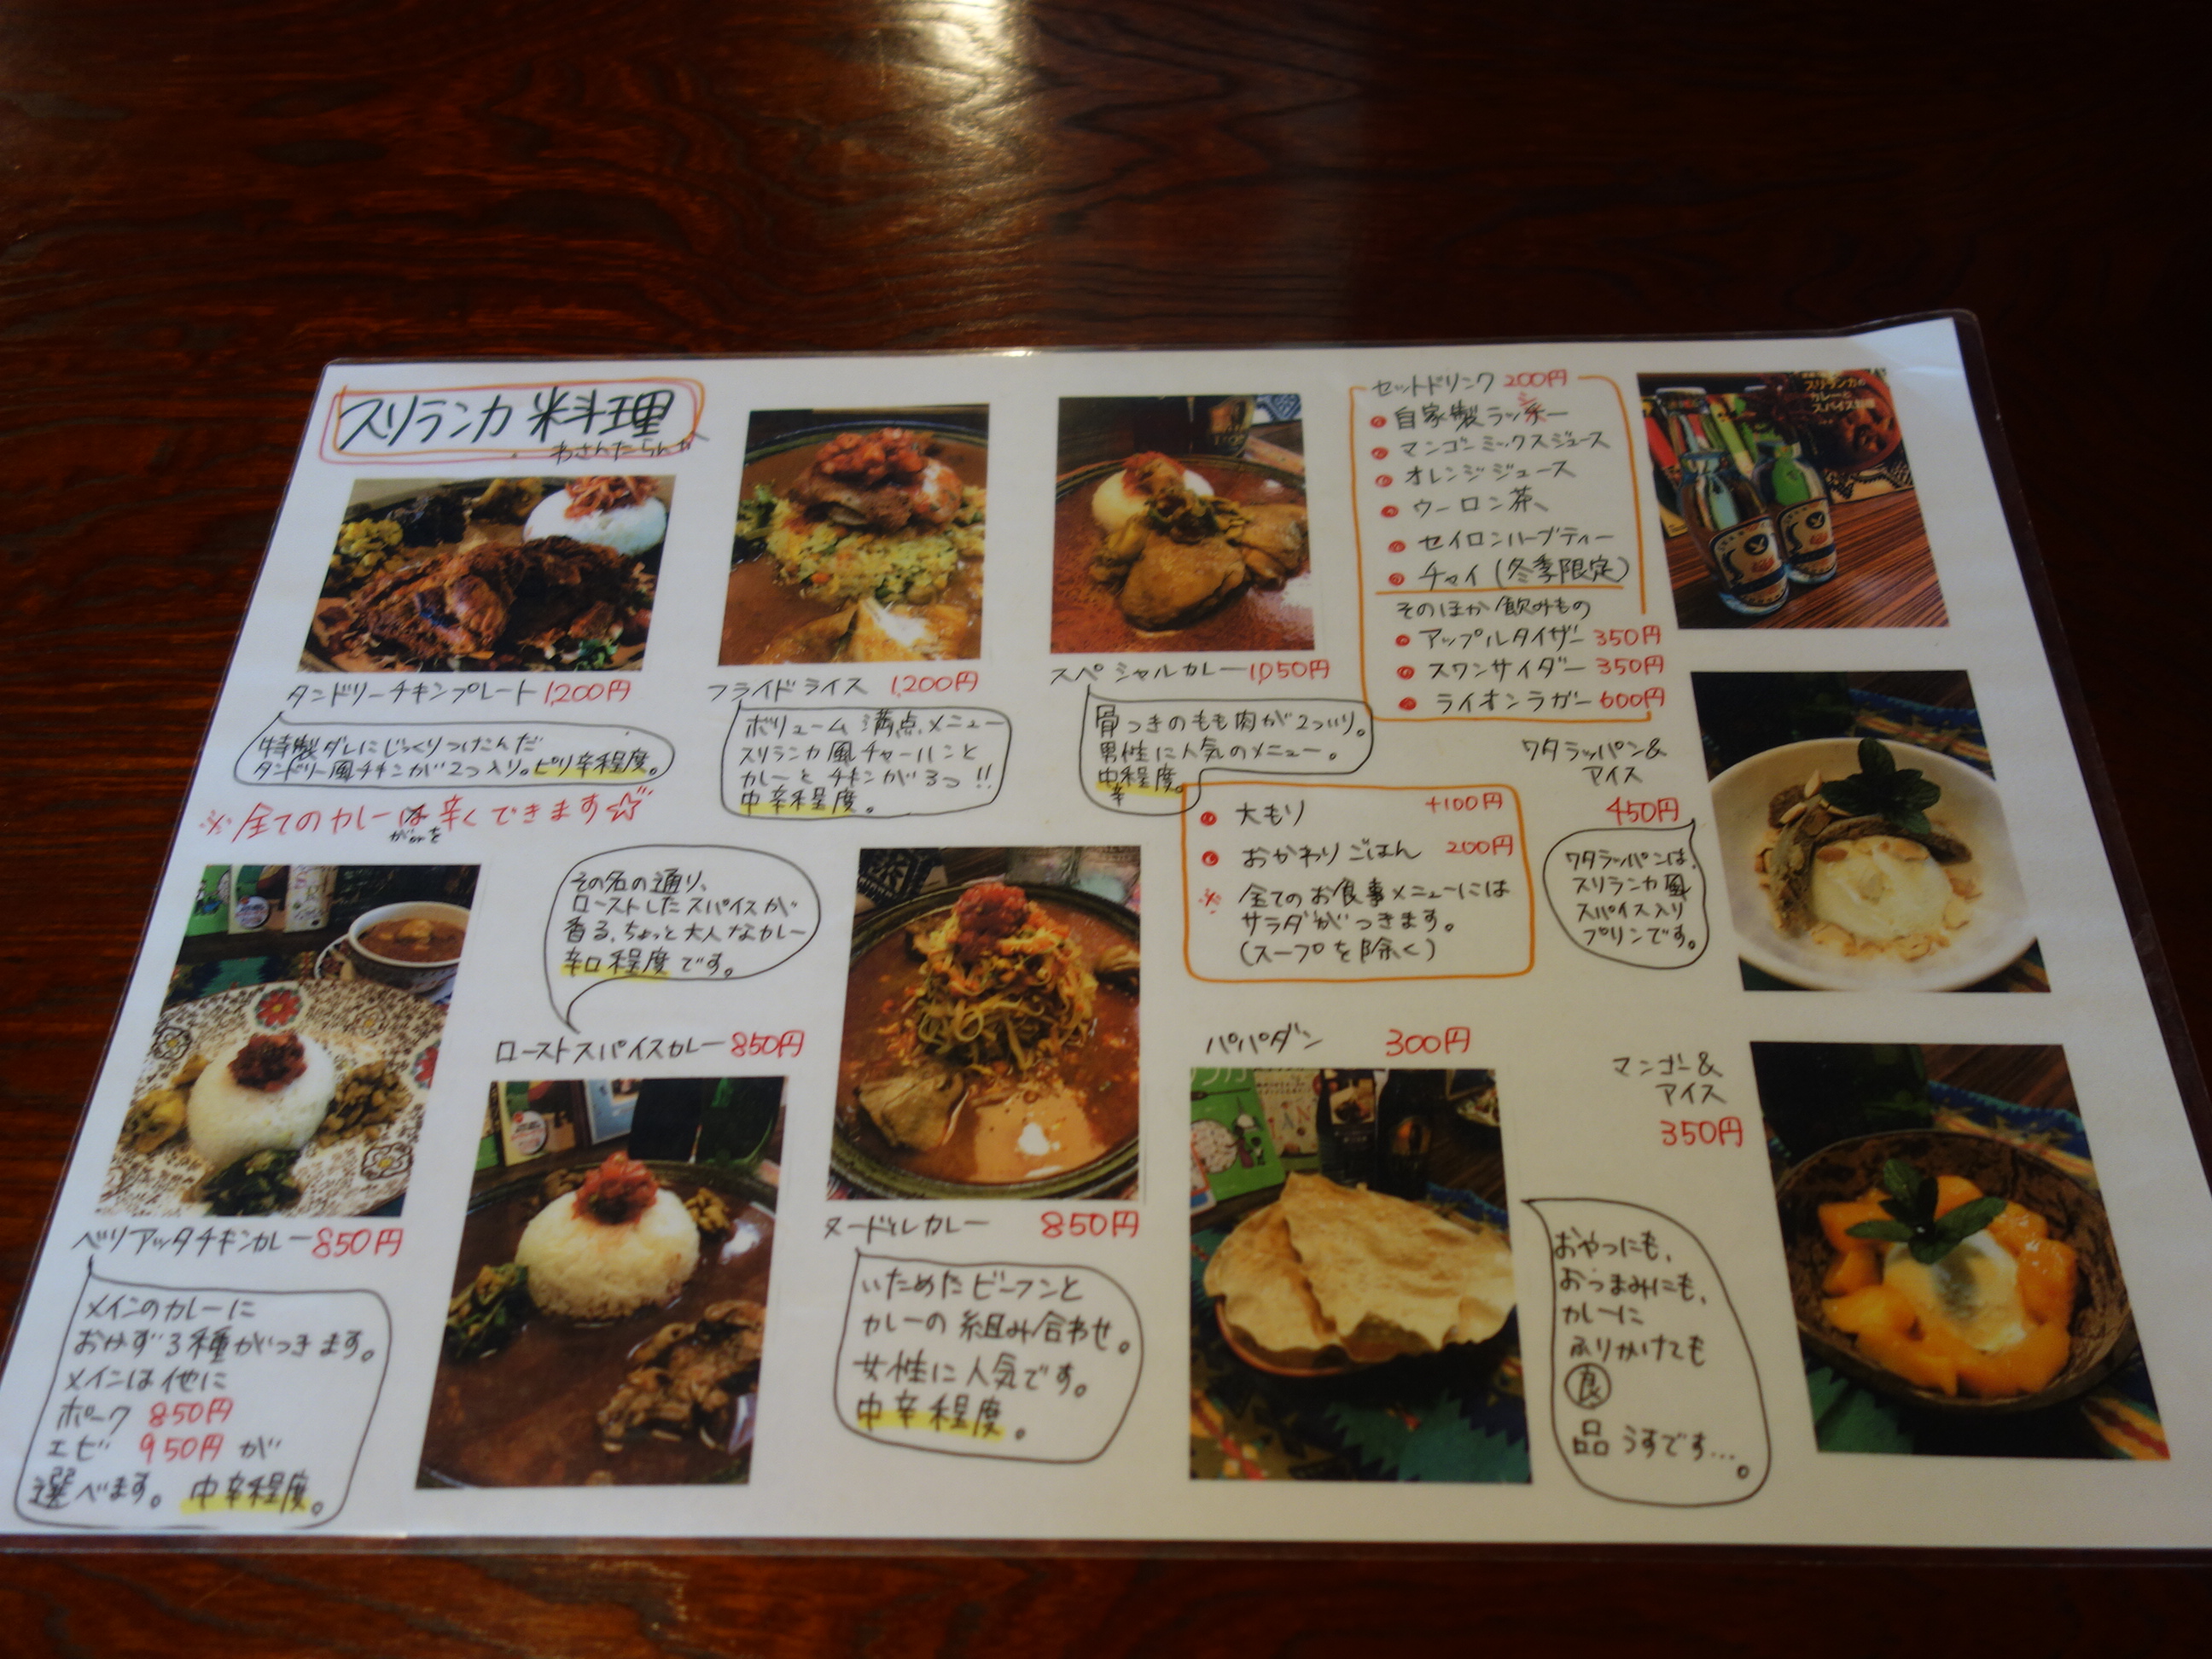 スリランカ 料理
わさんたらんか
タンドリーチキンプレート 1,200円
特製ダレにじっくりつけこんだ
タンドリー風チキンが2つ入り。ピリ辛程度。
フライドライス 1,200円
ボリューム満点メニュー
スリランカ風チャーハンと
カレーとチキンが3つ!!
中辛程度。
スペシャルカレー 1,050円
骨つきのもも肉が2つ入り。
男性に人気のメニュー。
中辛程度。
セットドリンク 200円
自家製ラッシー
マンゴーミックスジュース
オレンジジュース
ウーロン茶
セイロンハーブティー
チャイ(冬季限定)
そのほか飲みもの
アップルタイザー 350円
スワンサイダー 350円
ライオンラガー 600円
スリランカの
カレーと
スパイス料理
※全てのカレーは辛くできます☆
大もり +100円
おかわりごはん 200円
※全てのお食事メニューには
サラダがつきます。
(スープを除く)
ワタラッパン&
アイス
450円
ワタラッパンは、
スリランカ風
スパイス入り
プリンです。
ベリアッタチキンカレー 850円
メインのカレーに
おかず3種がつきます。
メインは他に
ポーク 850円
エビ 950円 が
選べます。 中辛程度。
その名の通り、
ローストしたスパイスが
香る、ちょっと大人なカレー
辛口程度です。
ローストスパイスカレー 850円
ヌードルカレー 850円
いためたビーフンと
カレーの組み合わせ。
女性に人気です。
中辛程度。
パパダン 300円
おやつにも、
おつまみにも、
カレーに
ふりかけても
良
品 うすです…。
マンゴー&
アイス
350円